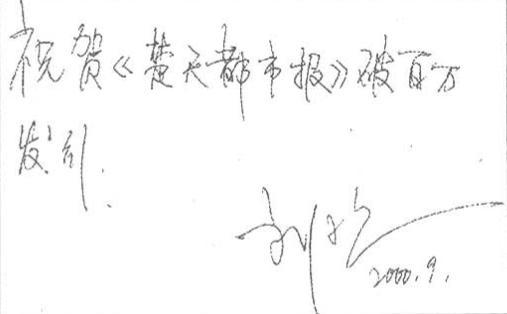 祝贺《楚天都市报》破百万
发行.
刘
2000.9.